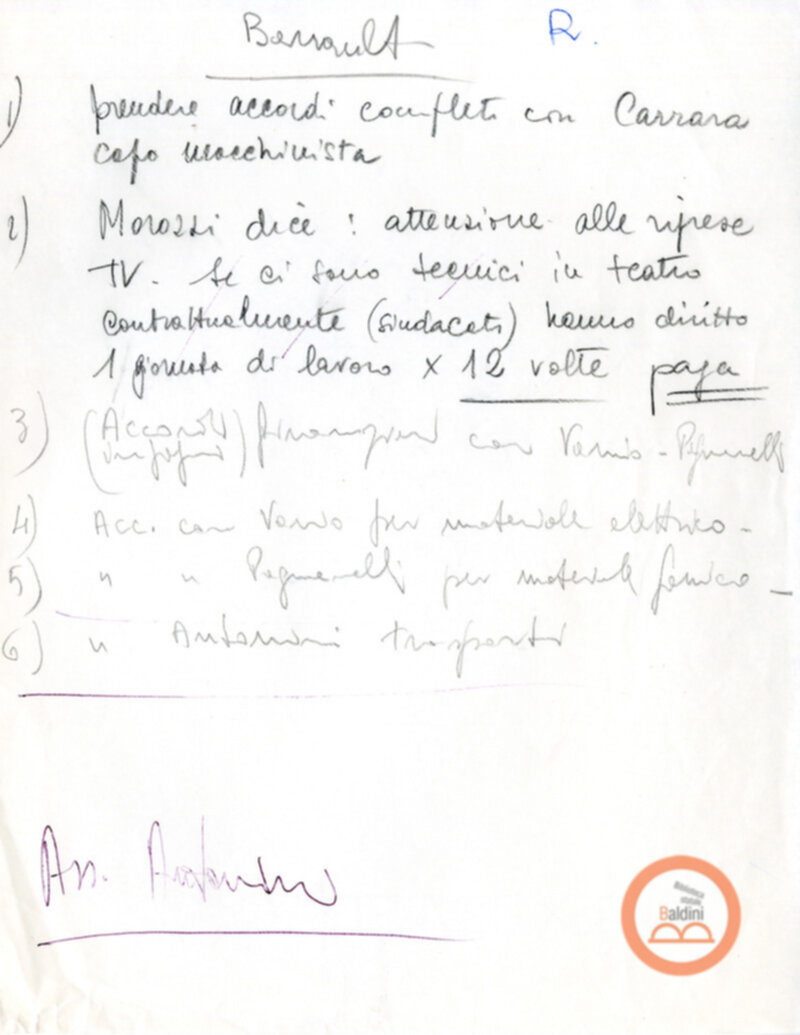 Barrault R.
1) prendere accordi completi con Carrara
capo macchinista
2) Morozzi dice: attenzione alle riprese
TV. Se ci sono tecnici in teatro
contrattualmente (sindacati) hanno diritto
1 giornata di lavoro x 12 volte paga
3) (Accordi) finanziari con Vannio - Pagnanelli
4) Acc. con Vannio per materiale elettrico -
5) " " Pagnanelli per materiale fonico -
6) " Antonini trasporti
Ass. Antonini
Biblioteca
statale
Baldini